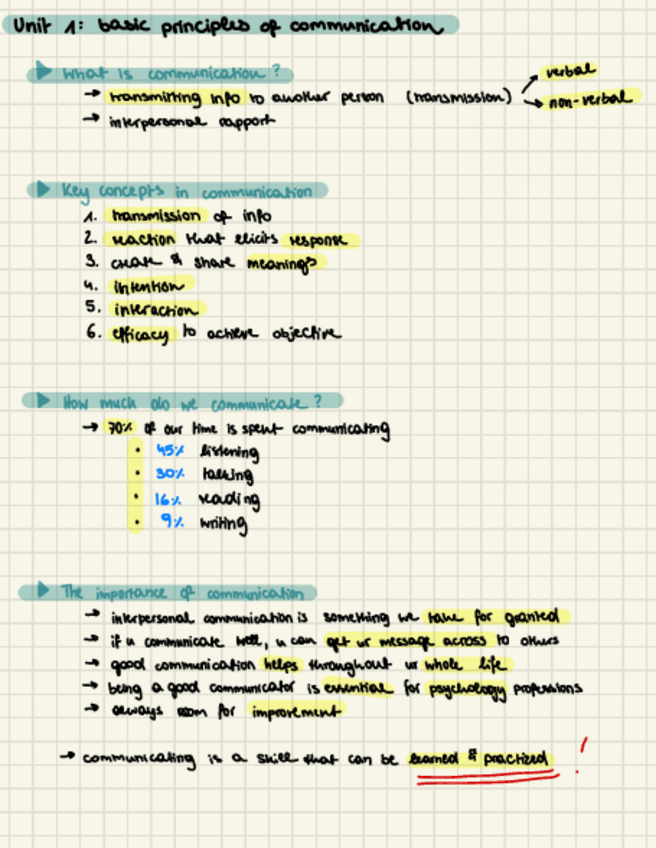 Unit 1: basic principles of communication
▶ What is communication?
→ transmitting info to another person (transmission) → verbal
→ non-verbal
→ interpersonal rapport
▶ Key concepts in communication
1. transmission of info
2. reaction that elicits response
3. create & share meanings
4. intention
5. interaction
6. efficacy to achieve objective
▶ How much do we communicate?
→ 70% of our time is spent communicating
• 45% listening
• 30% talking
• 16% reading
• 9% writing
▶ The importance of communication
→ interpersonal communication is something we take for granted
→ if u communicate well, u can get ur message across to others
→ good communication helps throughout ur whole life
→ being a good communicator is essential for psychology professions
→ always room for improvement
→ communicating is a skill that can be learned & practized !